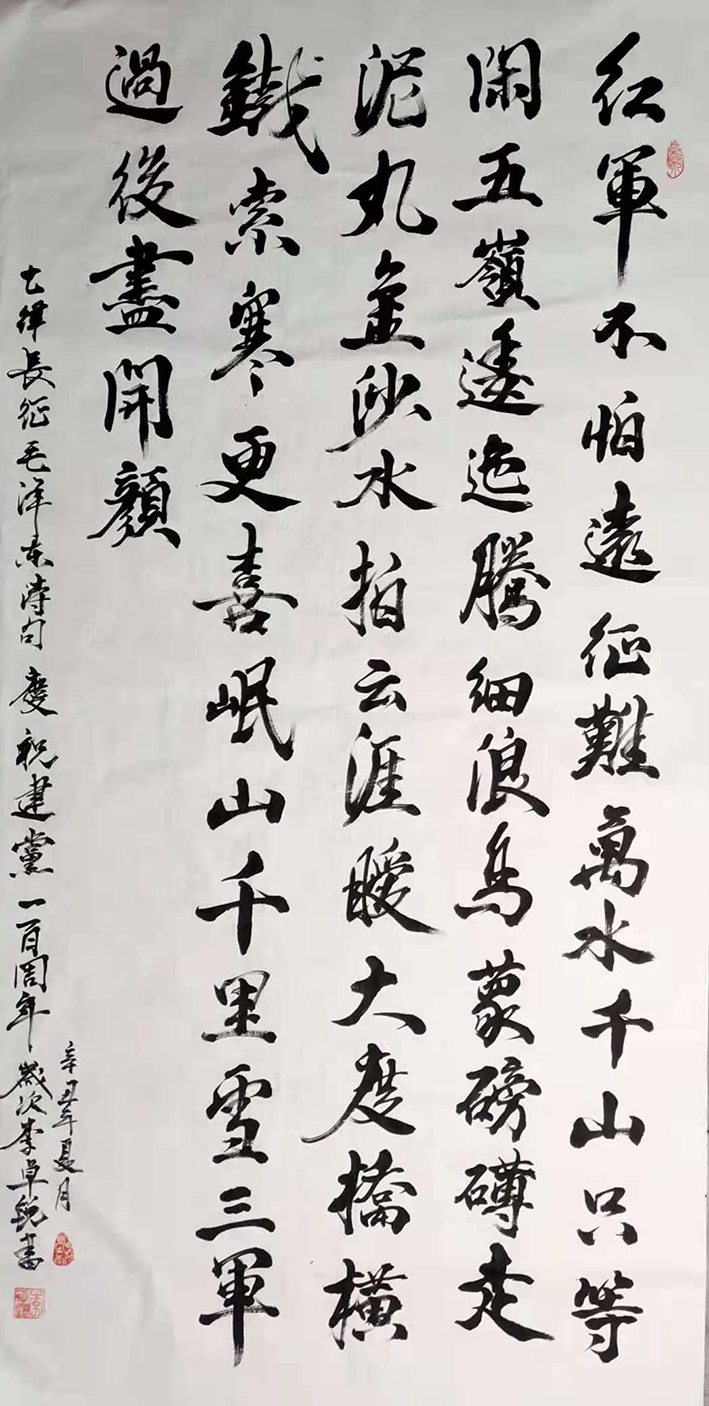 紅軍不怕遠征難萬水千山只等
閑五嶺逶迤騰細浪烏蒙磅礡走
泥丸金沙水拍云涯暖大度橋橫
鐵索寒更喜岷山千里雪三軍
過後盡開顏
七律長征毛澤東詩句慶祝建黨一百周年歲次李卓銳書
辛丑年夏月